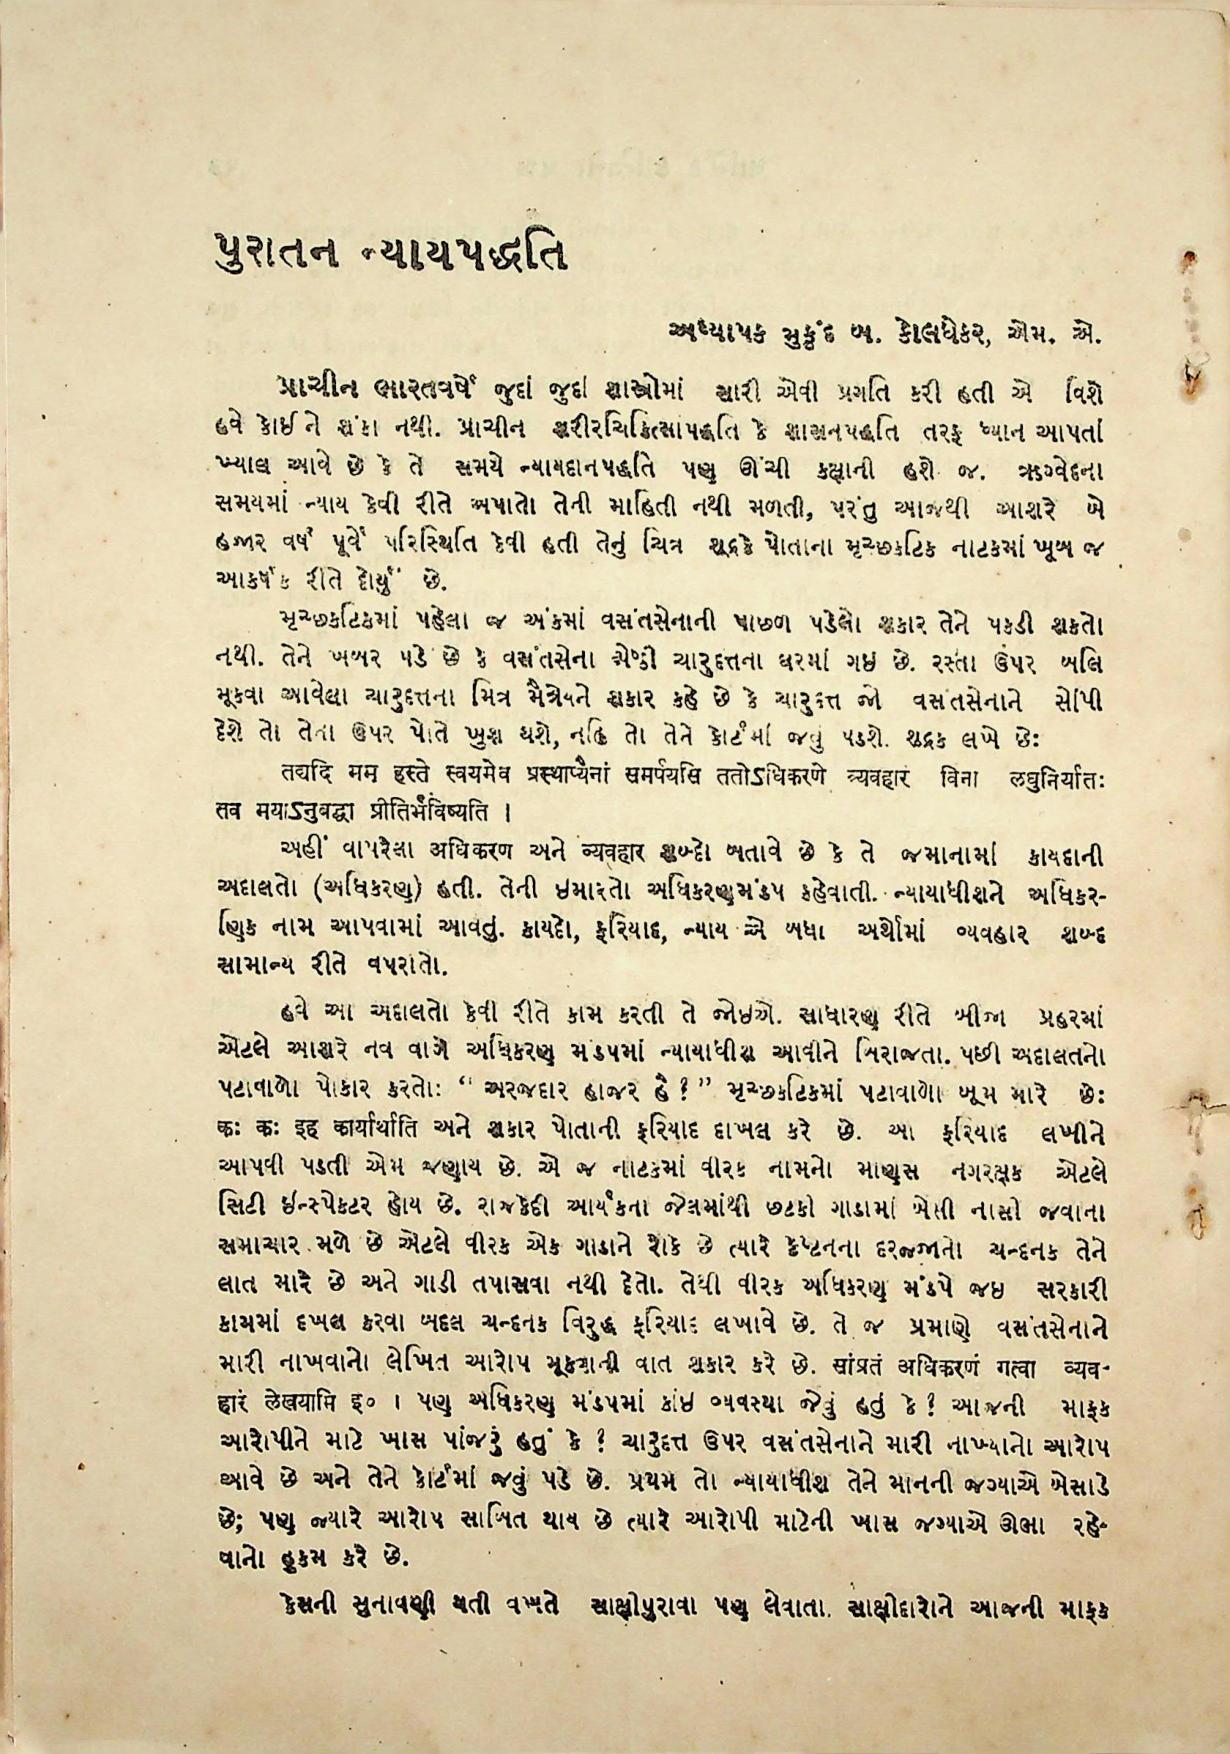 પુરાતન ન્યાયપદ્ધતિ
અધ્યાપક મુકુંદ બ. કોલધેકર, એમ. એ.
પ્રાચીન ભારતવર્ષે જુદાં જુદાં શાસ્ત્રોમાં સારી એવી પ્રગતિ કરી હતી એ વિશે
હવે કોઈને શંકા નથી. પ્રાચીન શરીરચિકિત્સાપદ્ધતિ કે શાસનપદ્ધતિ તરફ ધ્યાન આપતાં
ખ્યાલ આવે છે કે તે સમયે ન્યાયદાનપદ્ધતિ પણ ઊંચી કક્ષાની હશે જ. ઋગ્વેદના
સમયમાં ન્યાય કેવી રીતે અપાતો તેની માહિતી નથી મળતી, પરંતુ આજથી આશરે બે
હજાર વર્ષ પૂર્વે પરિસ્થિતિ કેવી હતી તેનું ચિત્ર શૂદ્રકે પોતાના મૃચ્છકટિક નાટકમાં ખૂબ જ
આકર્ષક રીતે દોર્યું છે.
મૃચ્છકટિકમાં પહેલા જ અંકમાં વસંતસેનાની પાછળ પડેલો શકાર તેને પકડી શકતો
નથી. તેને ખબર પડે છે કે વસંતસેના એજી ચારુદત્તના ઘરમાં ગઇ છે. રસ્તા ઉપર બલિ
મૂકવા આવેલા ચારુદત્તના મિત્ર મૈત્રેયને શકાર કહે છે કે ચારુદત્ત જો વસંતસેનાને સોંપી
દેશે તો તેના ઉપર પોતે ખુશ થશે, નહિ તો તેને કોર્ટમાં જવું પડશે. શૂદ્રક લખે છે:
તદ્યદિ मम हस्ते स्वयमेव प्रस्थाप्यैनां समर्पयसि ततोऽधिकरणे व्यवहारं विना लघुनिर्यातः
तव मयाऽनुबद्धा प्रीतिर्भविष्यति ।
અહીં વાપરેલા अधिकरण અને व्यवहार શબ્દો બતાવે છે કે તે જમાનામાં કાયદાની
અદાલતો (અધિકરણ) હતી. તેની ઇમારતો અધિકરણમંડપ કહેવાતી. ન્યાયાધીશને અધિકર-
ણિક નામ આપવામાં આવતું. કાયદો, ફરિયાદ, ન્યાય એ બધા અર્થોમાં વ્યવહાર શબ્દ
સામાન્ય રીતે વપરાતો.
હવે આ અદાલતો કેવી રીતે કામ કરતી તે જોઇએ. સાધારણ રીતે બીજા પ્રહરમાં
એટલે આશરે નવ વાગે અધિકરણ મંડપમાં ન્યાયાધીશ આવીને બિરાજતા. પછી અદાલતનો
પટાવાળો પોકાર કરતો: “ અરજદાર હાજર હૈ ? ” મૃચ્છકટિકમાં પટાવાળો બૂમ મારે છે:
कः कः इह कार्यार्थीति અને શકાર પોતાની ફરિયાદ દાખલ કરે છે. આ ફરિયાદ લખીને
આપવી પડતી એમ જણાય છે. એ જ નાટકમાં વીરક નામનો માણસ નગરરક્ષક એટલે
સિટી ઇન્સ્પેક્ટર હોય છે. રાજકેદી આર્યકના જેલમાંથી છટકી ગાડામાં બેસી નાસી જવાના
સમાચાર મળે છે એટલે વીરક એક ગાડાને રોકે છે ત્યારે કેપ્ટનના દરજ્જાનો ચન્દનક તેને
લાત મારે છે અને ગાડી તપાસવા નથી દેતો. તેથી વીરક અધિકરણ મંડપે જઇ સરકારી
કામમાં દખલ કરવા બદલ ચન્દનક વિરુદ્ધ ફરિયાદ લખાવે છે. તે જ પ્રમાણે વસંતસેનાને
મારી નાખવાનો લેખિત આરોપ મૂકવાની વાત શકાર કરે છે. सांप्रतं अधिकरणं गत्वा व्यव-
हारं लेखयामि इ० । પણ અધિકરણ મંડપમાં કાંઇ વ્યવસ્થા જેવું હતું કે ? આજની માફક
આરોપીને માટે ખાસ પાંજરું હતું કે ? ચારુદત્ત ઉપર વસંતસેનાને મારી નાખ્યાનો આરોપ
આવે છે અને તેને કોર્ટમાં જવું પડે છે. પ્રથમ તો ન્યાયાધીશ તેને માનની જગ્યાએ બેસાડે
છે; પણ જ્યારે આરોપ સાબિત થાય છે ત્યારે આરોપી માટેની ખાસ જગ્યાએ ઊભા રહે-
વાનો હુકમ કરે છે.
કેસની સુનાવણી થતી વખતે સાક્ષીપુરાવા પણ લેવાતા. સાક્ષીદારોને આજની માફક